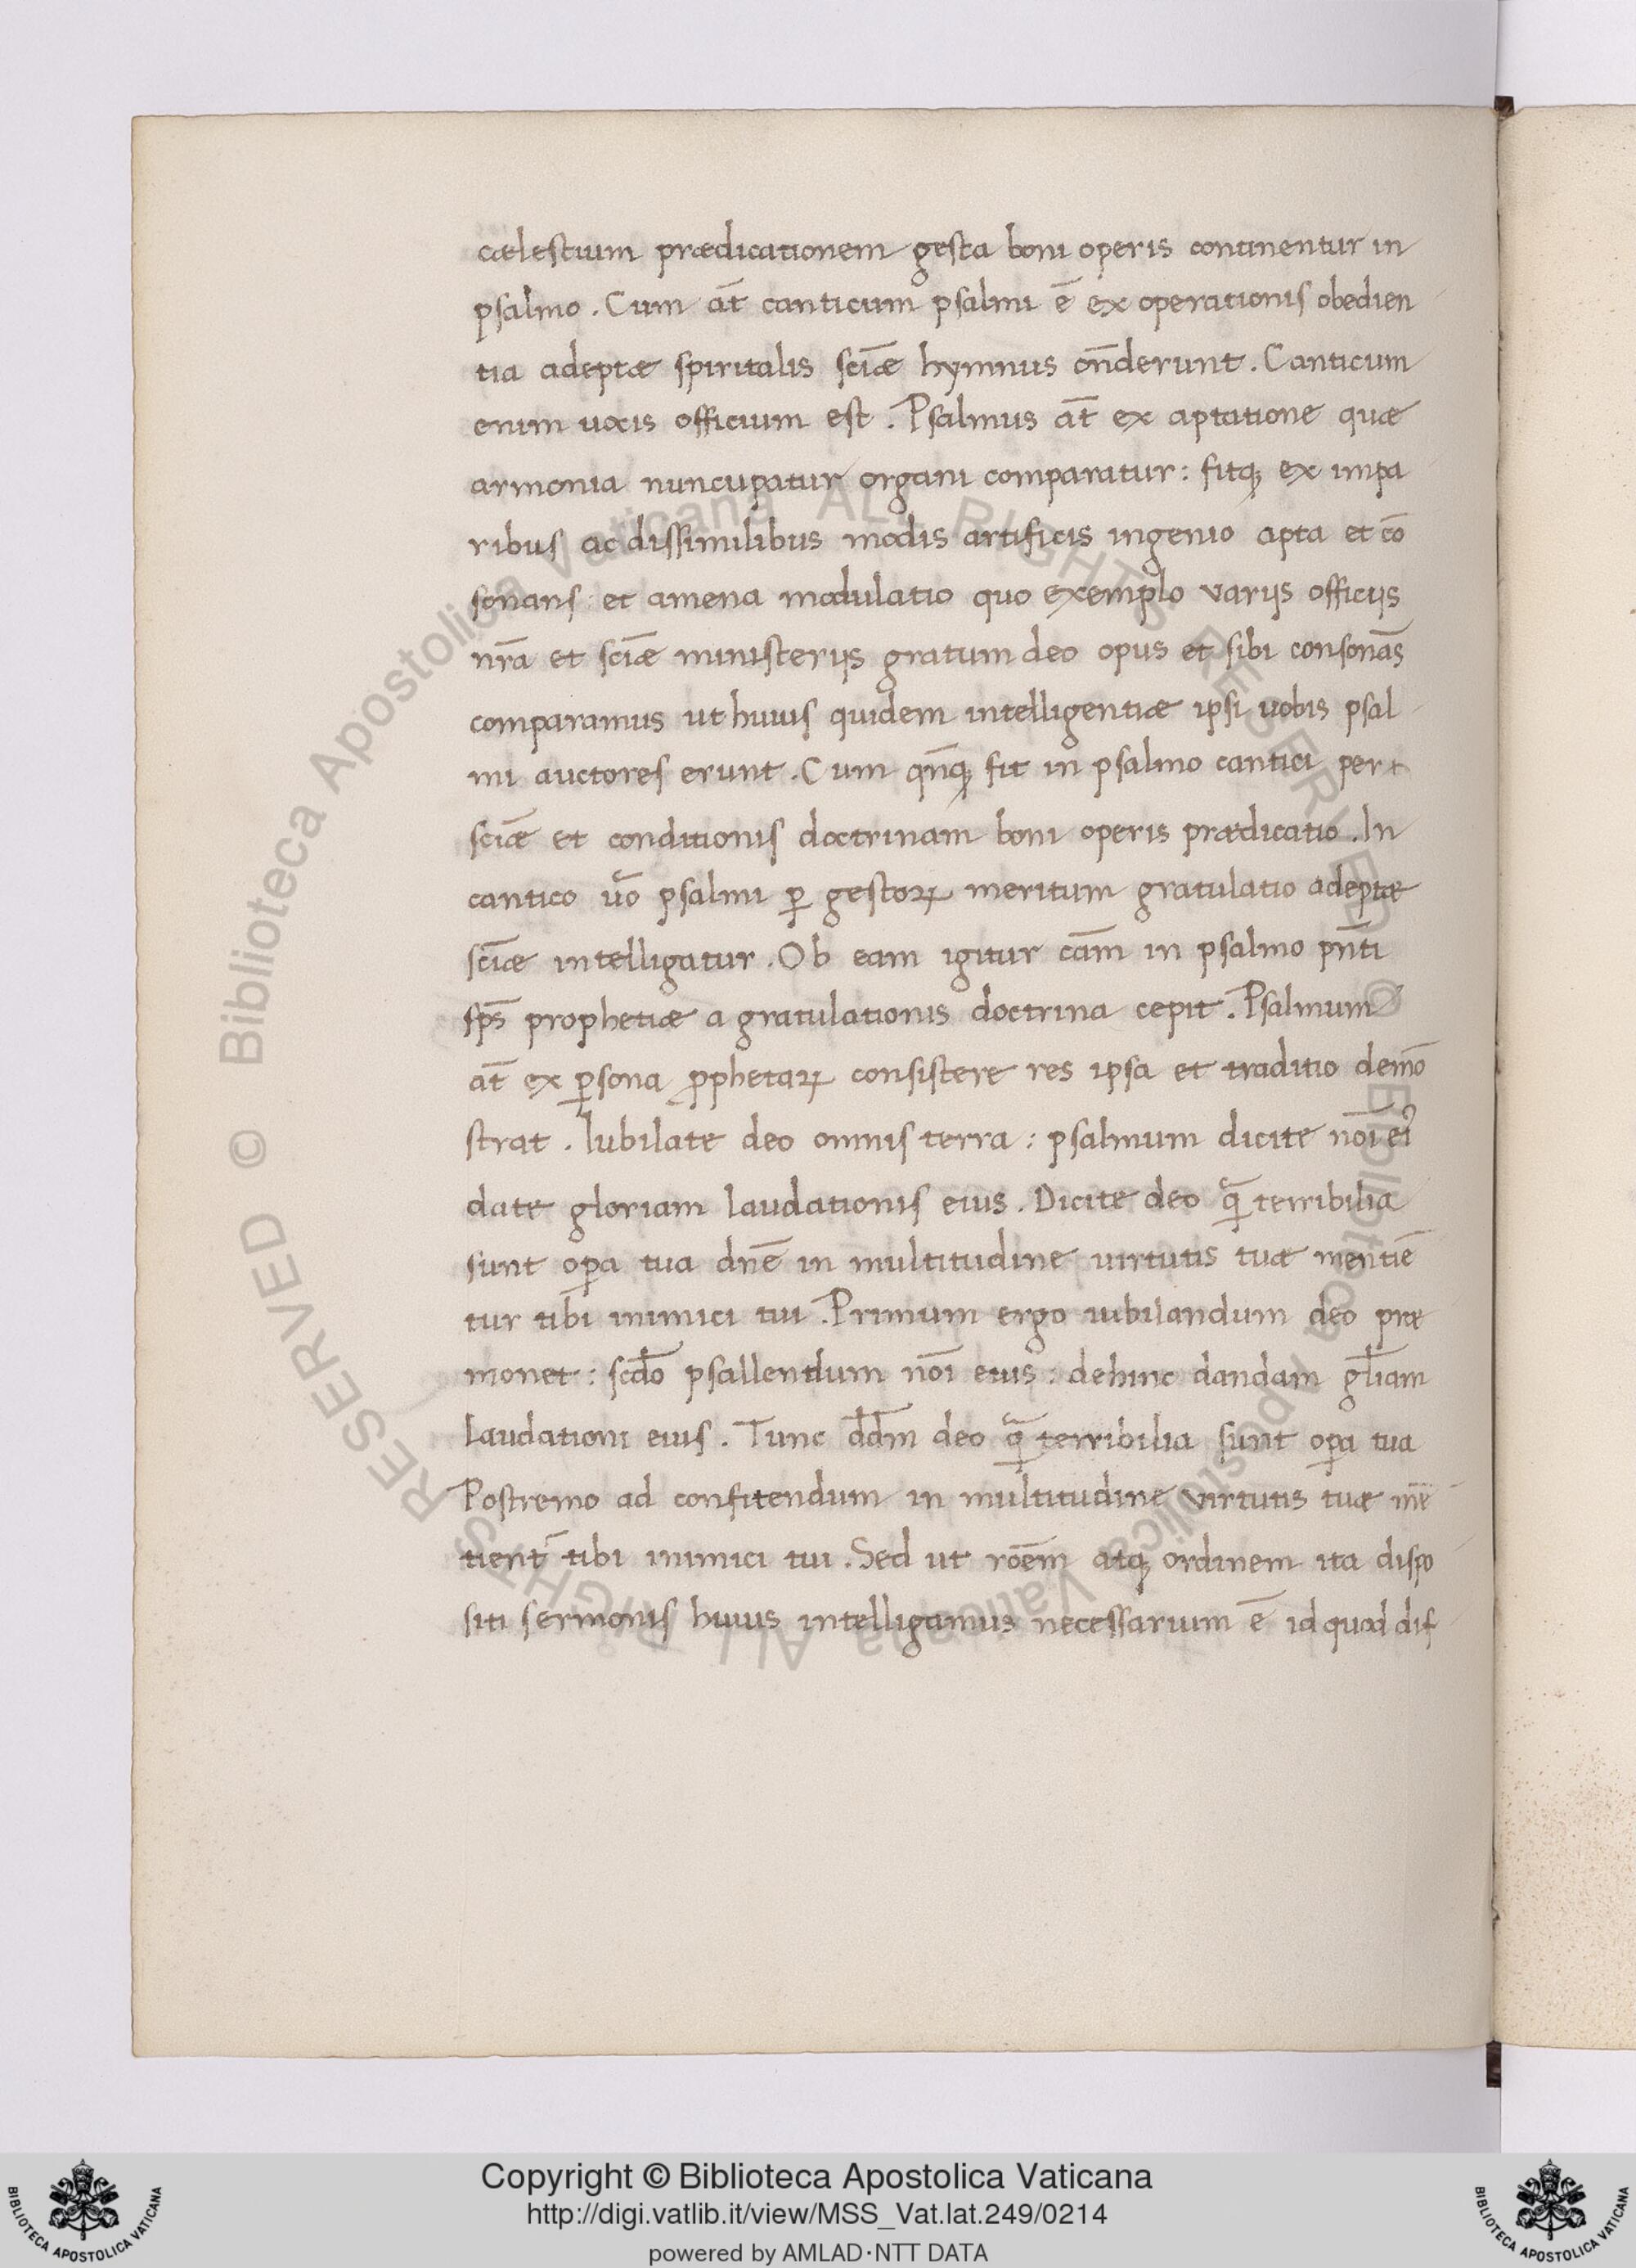 cælestium prædicationem gesta boni operis continentur in
psalmo . Cum at̄ canticum psalmi ē ex operationis obedien
tia adeptæ spiritalis sciēæ hymnus on̄derunt . Canticum
enim uocis officium est . Psalmus at̄ ex aptatione quæ
armonia nuncupatur organi comparatur : fitq; ex impa
ribus ac dissimilibus modis artificis ingenio apta et cō
sonans et amena modulatio quo exemplo varijs officijs
nr̄a et scīæ ministerijs gratum deo opus et sibi consonās
comparamus ut huius quidem intelligentiæ ipsi uobis psal
mi auctores erunt . Cum qn̄q; fit in psalmo cantici per
scīæ et conditionis doctrinam boni operis prædicatio . In
cantico ūo psalmi ꝑ gestoꝝ meritum gratulatio adeptæ
scīæ intelligatur . Ob eam igitur cām in psalmo pn̄ti
sp̄s prophetiæ a gratulationis doctrina cepit . Psalmum
at̄ ex ꝑsona ꝓphetaꝝ consistere res ipsa et traditio demō
strat . Iubilate deo omnis terra : psalmum dicite noī eiꝰ
date gloriam laudationis eius . Dicite deo q̄ꝫ terribilia
sunt oꝑa tua dn̄e in multitudine virtutis tuæ mentiē
tur tibi inimici tui . Primum ergo iubilandum deo præ
monet : scd̄o psallendum noī eius : dehinc dandam gl̄iam
laudationi eius . Tunc dd̄m deo q̄ꝫ terribilia sunt oꝑa tua
Postremo ad confitendum in multitudine virtutis tuæ mē
tient᷑ tibi inimici tui . Sed ut rōem atq; ordinem ita dispo
siti sermonis huius intelligamus necessarium ē id quod dif
Copyright © Biblioteca Apostolica Vaticana
http://digi.vatlib.it/view/MSS_Vat.lat.249/0214
powered by AMLAD·NTT DATA
BIBLIOTECA APOSTOLICA VATICANA
BIBLIOTECA APOSTOLICA VATICANA
© Biblioteca Apostolica Vaticana ALL RIGHTS RESERVED © Biblioteca Apostolica Vaticana ALL RIGHTS RESERVED